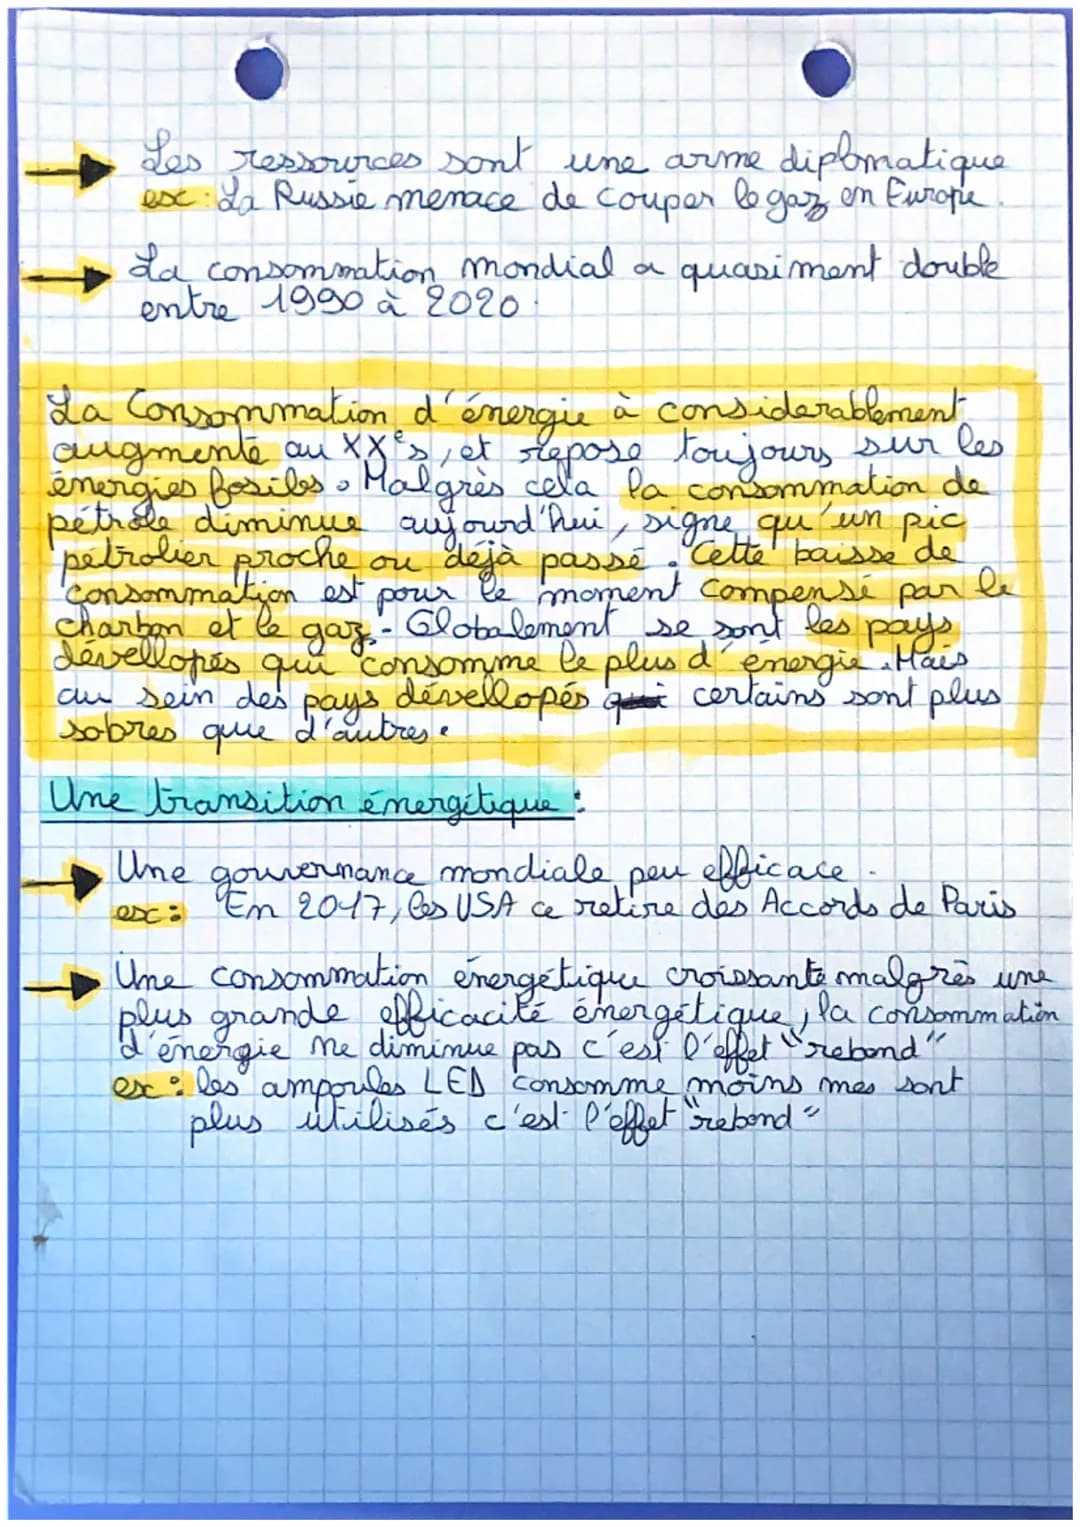 Les ressources sont une arme diplomatique
ex : La Russie menace de couper le gaz en Europe.
La consommation mondial a quasiment double
entre 1990 à 2020.
La Consommation d'énergie à considerablement
augmenté au XXe s, et repose toujours sur les
énergies fosiles. Malgrès cela la consommation de
pétrole diminue aujourd'hui, signe qu'un pic
pétrolier proche ou déjà passé. Cette baisse de
consommation est pour le moment compensé par le
charbon et le gaz. - Globalement se sont les pays
dévellopés qui consomme le plus d'énergie. Mais
au sein des pays dévellopés certains sont plus
sobres que d'autres.
Une transition énergétique :
Une gouvernance mondiale peu efficace.
ex : En 2017, les USA ce retire des Accords de Paris
Une consommation énergétique croissante malgrès une
plus grande efficacité énergétique, la consommation
d'énergie ne diminue pas c'est l'effet "rebond"
ex : les ampoules LED consomme moins mes sont
plus utilisés c'est l'effet "rebond"